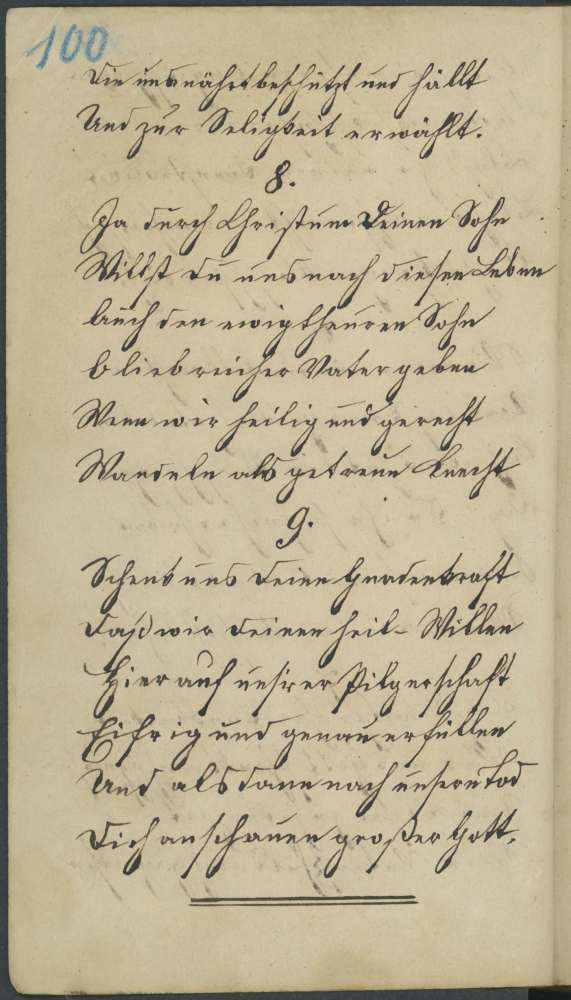 100
Die uns nährt beschützt und hällt
Und zur Seligkeit erwählt.
8.
Ja durch Christum Deinen Sohn
Willst du uns nach diesen Leben
Auch den ewig theuren Lohn
O liebreicher Vater geben
Wenn wir heilig und gerecht
Wandeln als getreue Knecht
9.
Schenk uns Deine Gnadenkraft
Daß wir Deinen heil- Willen
Hier auf unsrer Pilgerschaft
Eifrig und genau erfüllen
Und alsdann nach unsern Tod
Dich anschauen großer Gott.